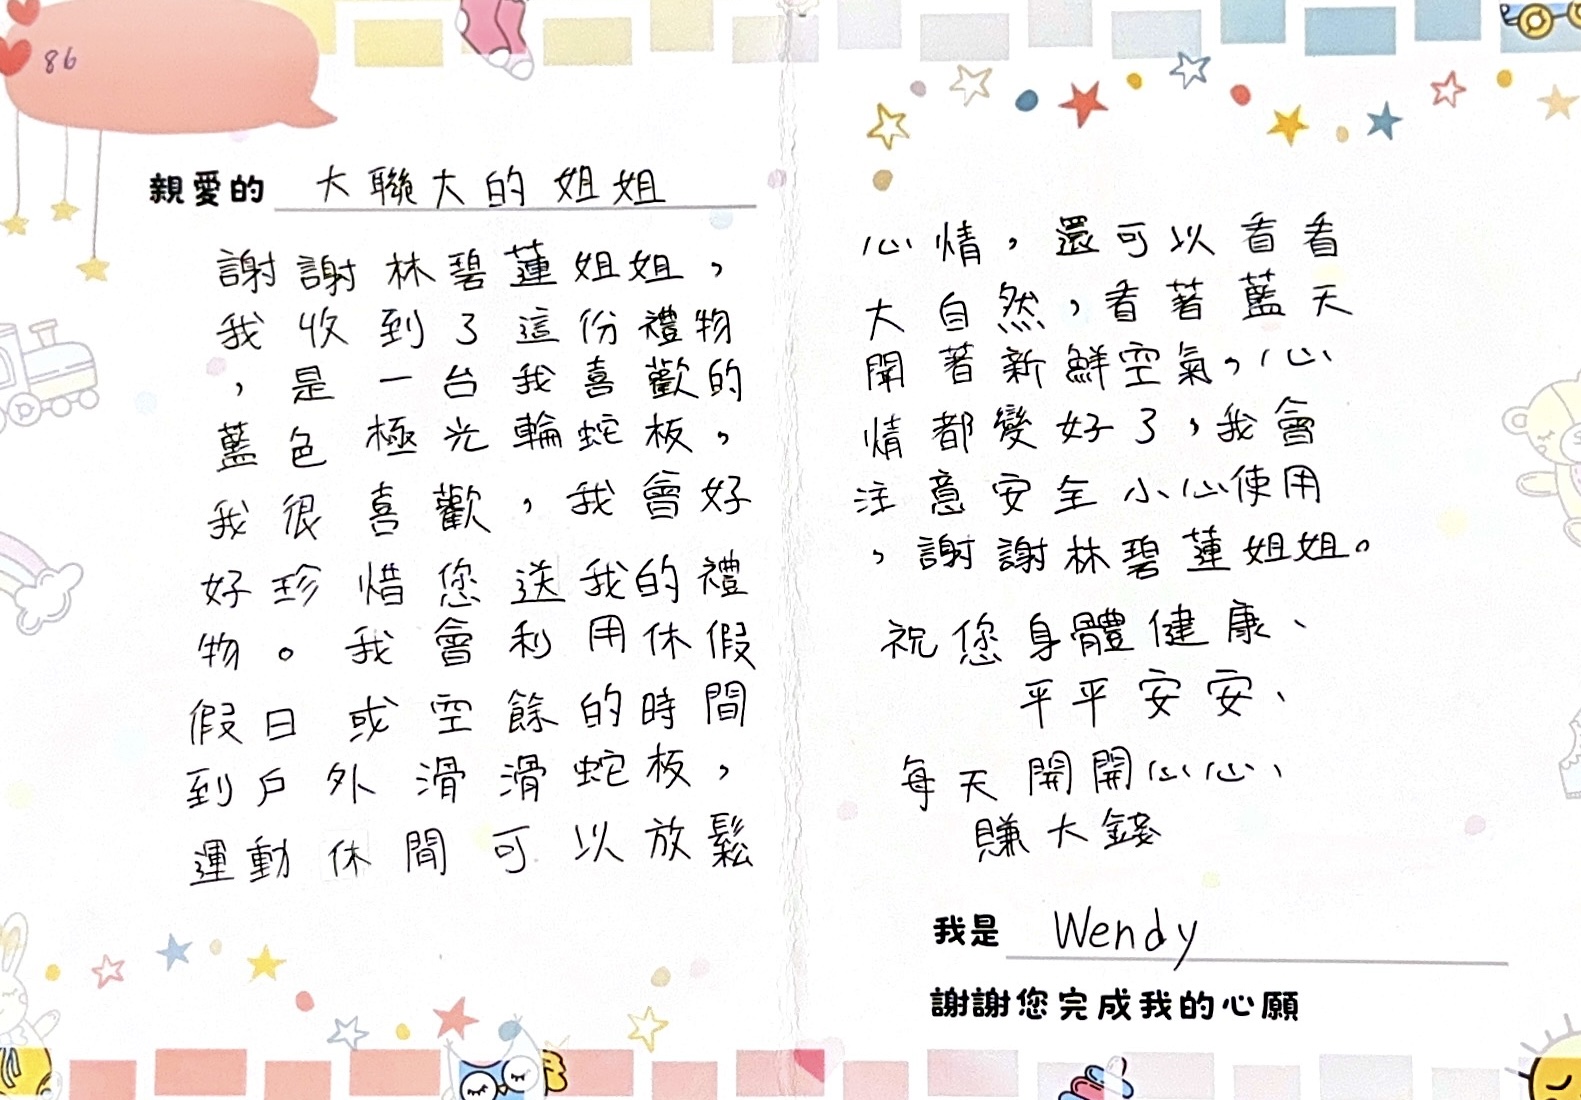 86
親愛的 大聯大的姐姐
謝謝林碧蓮姐姐，
我收到了這份禮物
，是一台我喜歡的
藍色極光輪蛇板。
我很喜歡，我會好
好珍惜您送我的禮
物。我會利用休假
假日或空餘的時間
到戶外滑滑蛇板，
運動休閒可以放鬆
心情，還可以看看
大自然，看著藍天
聞著新鮮空氣。心
情都變好了，我會
注意安全小心使用
，謝謝林碧蓮姐姐。
祝您身體健康、
平平安安、
每天開開心心、
賺大錢
我是 Wendy
謝謝您完成我的心願